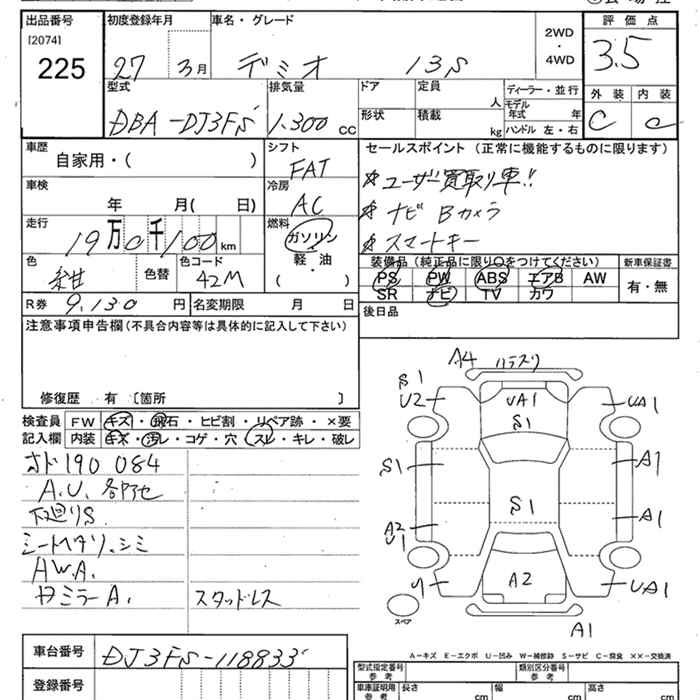 出品番号 初度登録年月 車名・グレード 2WD・4WD 評価点
[2074]
225 27 3月 デミオ 13S 3.5
型式 排気量 ドア 定員 人 ディーラー・並行 外装 内装
DBA-DJ3FS 1.300 cc 形状 積載 kg モデル年式 年 C C
ハンドル 左・右
車歴 シフト セールスポイント (正常に機能するものに限ります)
自家用・( ) FAT
車検 冷房 ユーザー買取り車!!
年 月( 日) AC ナビ Bカメラ
走行 燃料 スマートキー
19万0千100km ガソリン
色 色替 色コード 軽・油 装備品 (純正品に限り○をつけてください) 新車保証書
紺 42M ( ) PS PW ABS エアB AW 有・無
SR ナビ TV カワ
R券 9,130 円 名変期限 月 日 後日品
注意事項申告欄 (不具合内容等は具体的に記入して下さい)
修復歴 有 [箇所 ]
検査員 FW キズ・飛石・ヒビ割・リペア跡・×要
記入欄 内装 キズ・汚レ・コゲ・穴・スレ・キレ・破レ
190084
A.U. 各部色
下廻りS
シートヘタリ、シミ
HWA.
ミラーA. スタッドレス
A4
S1
U2 UA1 UA1
S1
S1 A1
S1
A2 A1
U1
A2 UA1
A1
スペア
A−キズ E−エクボ U−凹み W−補修跡 S−サビ C−腐食 ××−交換済
車台番号 DJ3FS-118833
型式指定番号 類別区分番号
参考 参考
登録番号 車庫証明用 長さ cm 幅 cm 高さ cm
参考